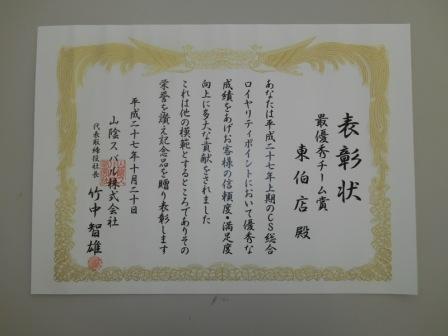 表彰状
最優秀チーム賞
東伯店 殿
あなたは平成二十七年上期のCS総合
ロイヤリティポイントにおいて優秀な
成績をあげお客様の信頼度・満足度
向上に多大な貢献をされました
これは他の模範とするところでありその
栄誉を讃え記念品を贈り表彰します
平成二十七年十月二十日
山陰スバル株式会社
代表取締役社長 竹中智雄